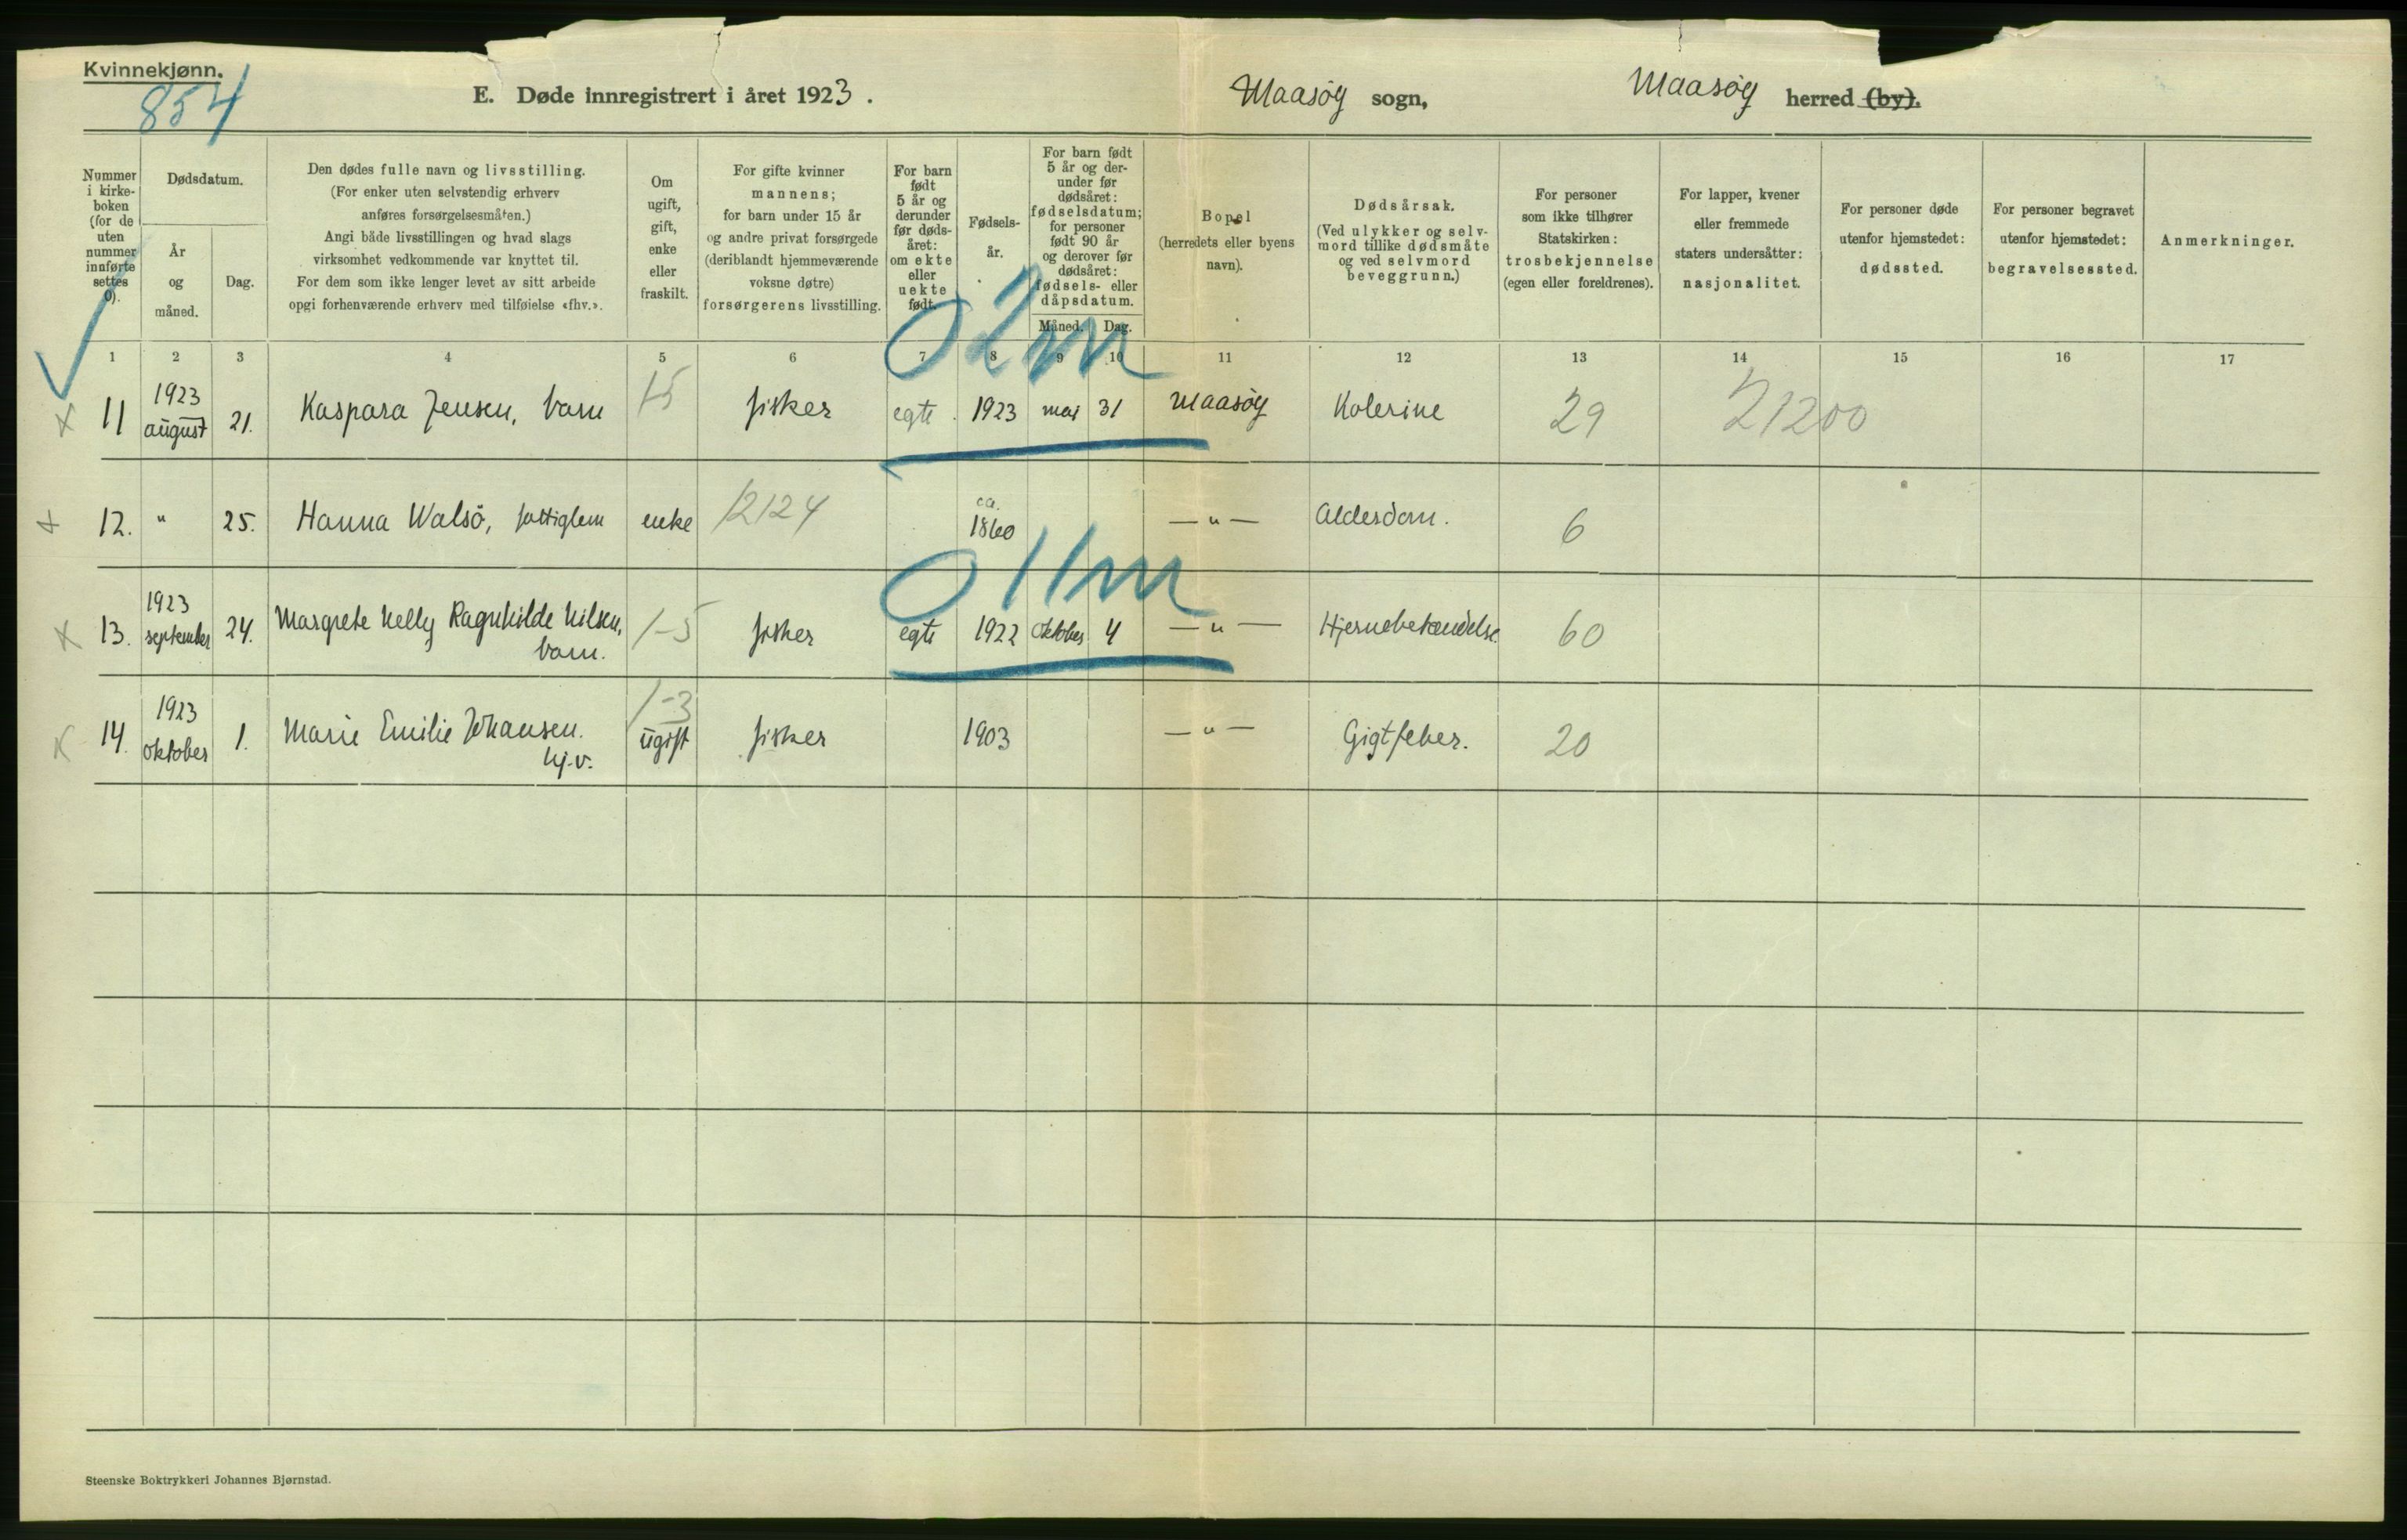 Kvinnekjønn.
854
E. Døde innregistrert i året 1923.
Maasøy sogn,
Maasøy herred (by).
Nummer
i kirke-
boken
(for de
uten
nummer
innførte
settes
0).
Dødsdatum.
År
og
måned.
Dag.
Den dødes fulle navn og livsstilling.
(For enker uten selvstendig erhverv
anføres forsørgelsesmåten.)
Angi både livsstillingen og hvad slags
virksomhet vedkommende var knyttet til.
For dem som ikke lenger levet av sitt arbeide
opgi forhenværende erhverv med tilføielse «fhv.».
Om
ugift,
gift,
enke
eller
fraskilt.
For gifte kvinner
mannens;
for barn under 15 år
og andre privat forsørgede
(deriblandt hjemmeværende
voksne døtre)
forsørgerens livsstilling.
For barn
født
5 år og
derunder
før døds-
året:
om ekte
eller
uekte
født.
Fødsels-
år.
For barn født
5 år og der-
under før
dødsåret:
fødselsdatum;
for personer
født 90 år
og derover før
dødsåret:
fødsels- eller
dåpsdatum.
Måned. Dag.
Bopel
(herredets eller byens
navn).
Dødsårsak.
(Ved ulykker og selv-
mord tillike dødsmåte
og ved selvmord
beveggrunn.)
For personer
som ikke tilhører
Statskirken:
trosbekjennelse
(egen eller foreldrenes).
For lapper, kvener
eller fremmede
staters undersåtter:
nasjonalitet.
For personer døde
utenfor hjemstedet:
dødssted.
For personer begravet
utenfor hjemstedet:
begravelsessted.
Anmerkninger.
1 2 3 4 5 6 7 8 9 10 11 12 13 14 15 16 17
0 2m
11 1923 august 21. Kaspara Jensen, barn 1-5 fisker egte 1923 mai 31 Maasøy Kolerine 29 21200
12. " 25. Hanna Walsö, fattiglem enke 12124 ca. 1860 — " — Alderdom. 6
0 11m
13. 1923 september 24. Margrete Nelly Ragnhilde Nilsen, barn. 1-5 fisker egte 1922 oktober 4 — " — Hjernebetændelse 60
14. 1923 oktober 1. Marie Emilie Johansen. hj.v. 1-3 ugift fisker 1903 — " — Gigtfeber. 20
Steenske Boktrykkeri Johannes Bjørnstad.